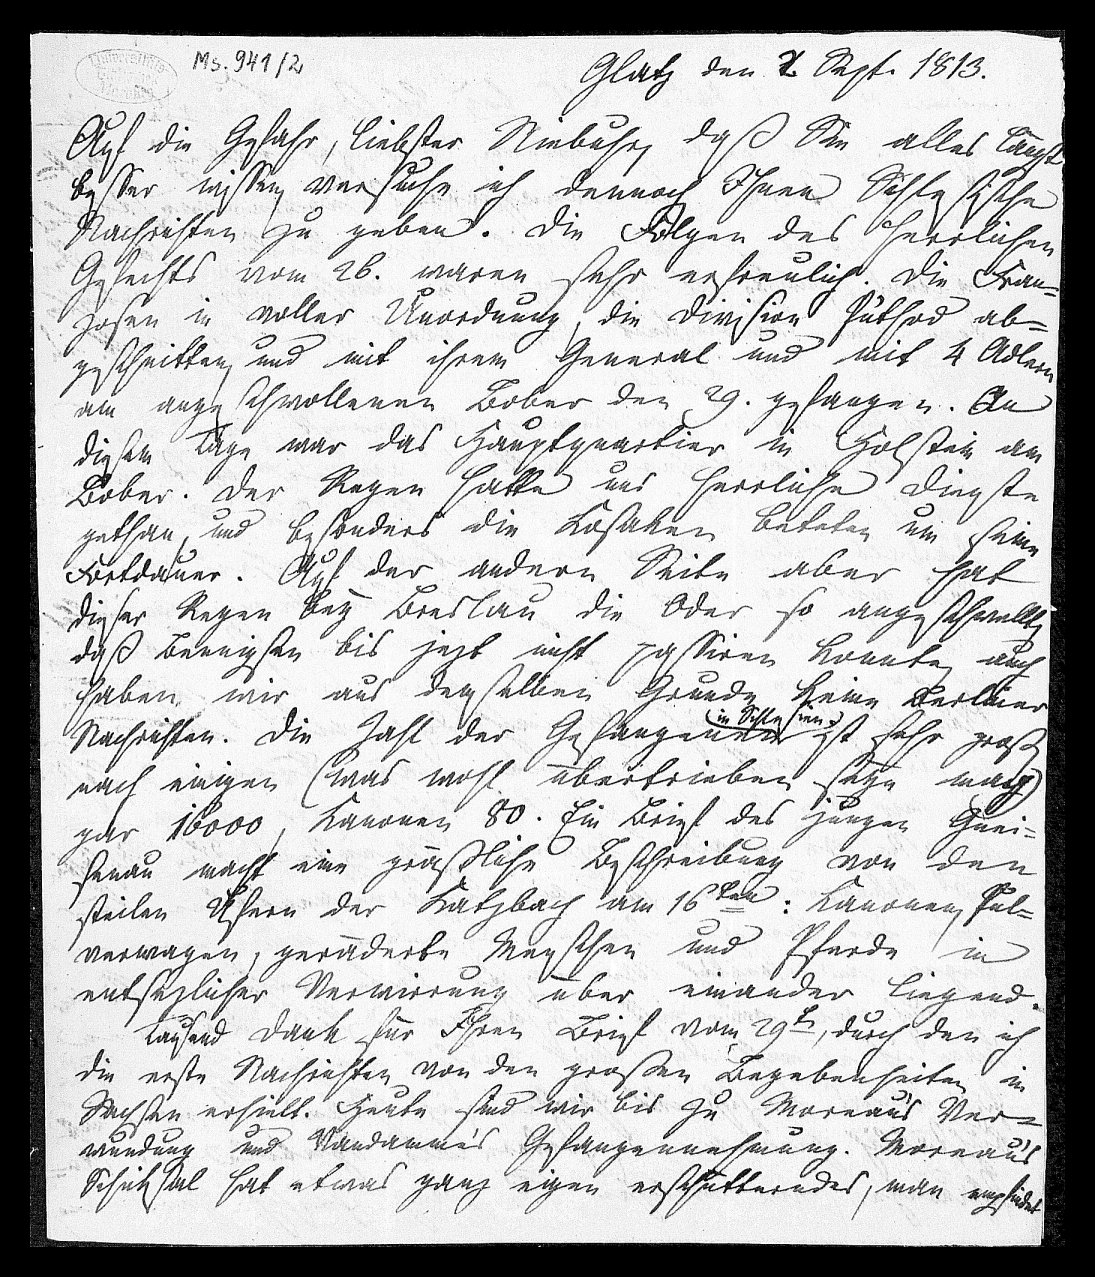 Ms. 941/2
Glatz den 2 Sept. 1813.
Auf die Gefahr, liebster Niebuhr, daß Sie alles längst
besser wissen, versuche ich dennoch Ihnen Schlesische
Nachrichten zu geben. Die Folgen des herrlichen
Gefechts vom 26. waren sehr erfreulich. Die Fran-
zosen in voller Unordnung, die Division Puthod ab-
geschnitten, und mit ihrem General und mit 4 Adlern
am angeschwollenen Bober den 29. gefangen. An
diesem Tage war das Hauptquartier in Holstein am
Bober. Der Regen hatte uns herrliche Dienste
gethan, und besonders die Kosaken beteten um seine
Fortdauer. Auf der andern Seite aber hat
dieser Regen bey Breslau die Oder so angeschwellt,
daß Bennigsen bis jezt nicht passiren konnte, auch
haben wir aus demselben Grunde keine Berliner
Nachrichten. Die Zahl der Gefangenen (in Schlesien) ist sehr groß,
nach einigen (was wohl übertrieben seyn mag)
gar 16000, Kanonen 80. Ein Brief des jungen Gnei-
senau macht eine gräßliche Beschreibung von den
steilen Ufern der Katzbach am 16ten: Kanonen, Pul-
verwagen, geräderte Menschen und Pferde in
entsezlicher Verwirrung über einander liegend.
Tausend Dank für Ihren Brief vom 29t, durch den ich
die erste Nachrichten von den großen Begebenheiten in
Sachsen erhielt. Heute sind wir bis zu Moreau's Ver-
wundung und Vandamme's Gefangennehmung. Moreau's
Schicksal hat etwas ganz eigen erschütterndes, man empfindet